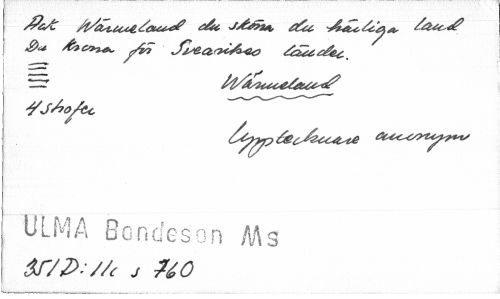 Ack Wärmeland du sköna du härliga land
Du Krona för Svearikes länder.
Wärmeland
4 strofer
Upptecknare anonym
ULMA Bondeson Ms
351D:11c s 760